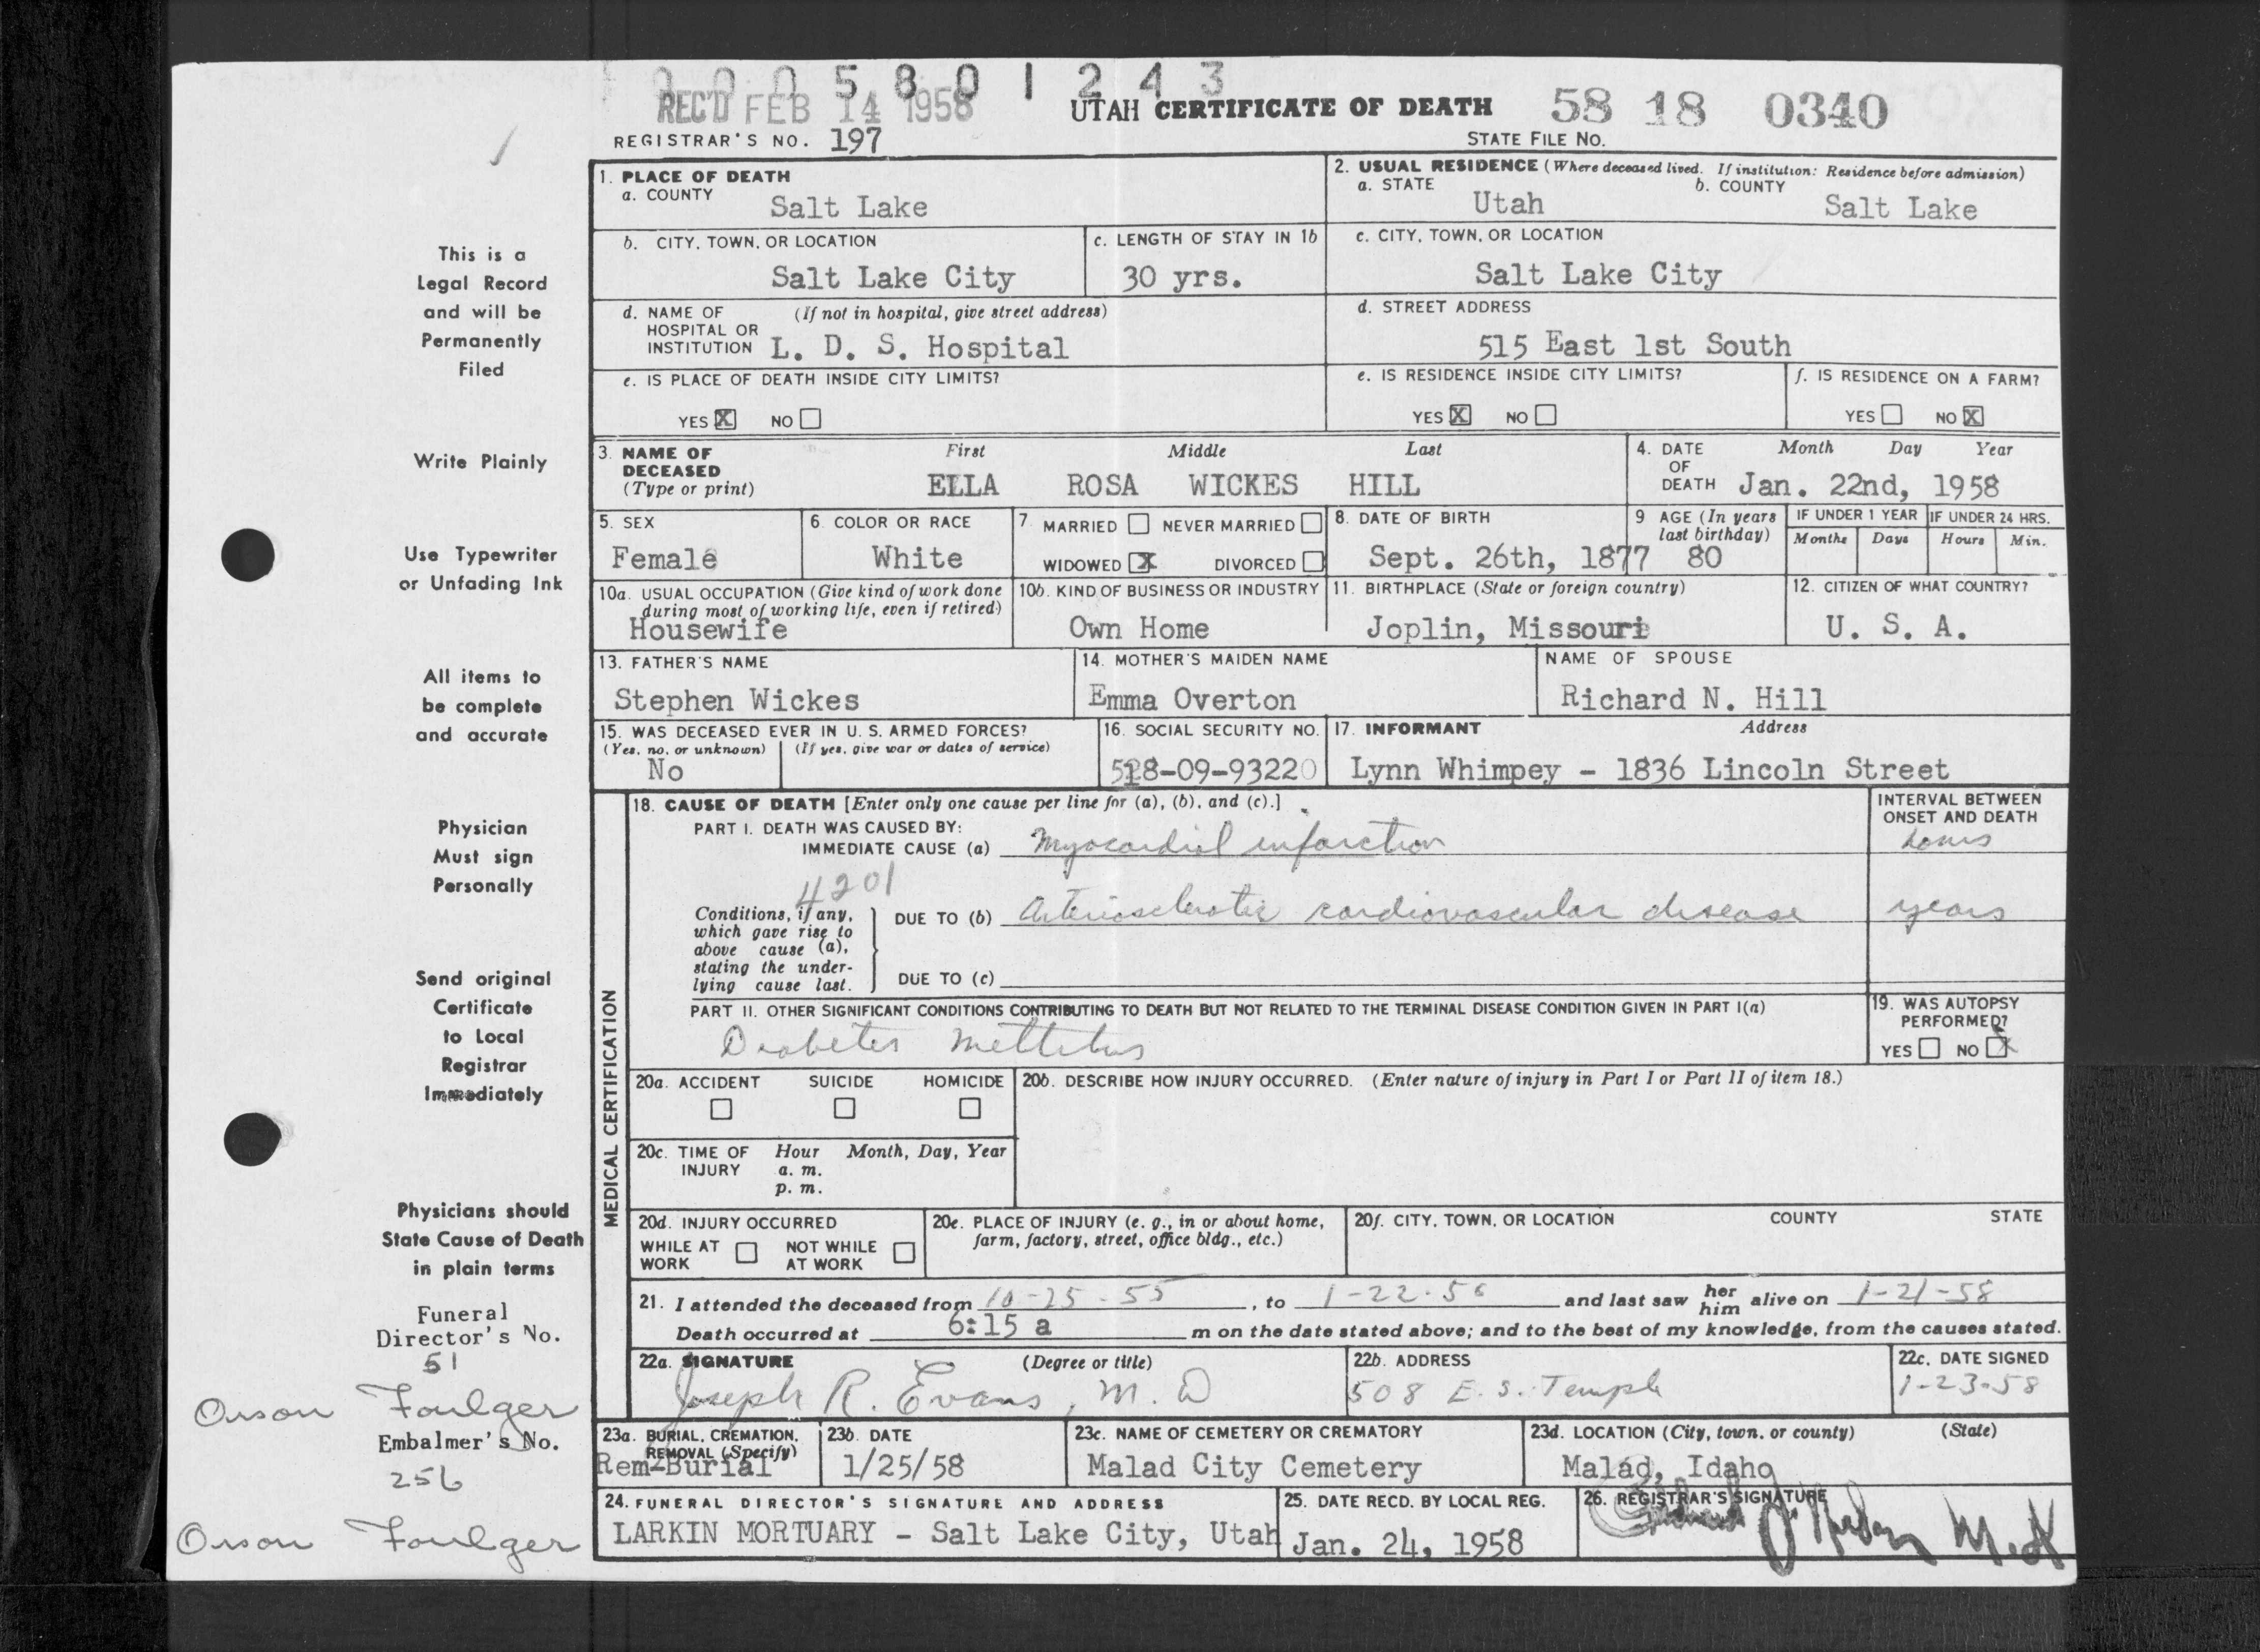 0 0 0 5 8 0 1 2 4 3
REC'D FEB 14 1958
UTAH CERTIFICATE OF DEATH 58 18 0340
REGISTRAR'S NO. 197 STATE FILE NO.
1. PLACE OF DEATH
a. COUNTY Salt Lake
2. USUAL RESIDENCE (Where deceased lived. If institution: Residence before admission)
a. STATE Utah b. COUNTY Salt Lake
b. CITY, TOWN, OR LOCATION Salt Lake City
c. LENGTH OF STAY IN 1b 30 yrs.
c. CITY, TOWN, OR LOCATION Salt Lake City
d. NAME OF HOSPITAL OR INSTITUTION (If not in hospital, give street address) L. D. S. Hospital
d. STREET ADDRESS 515 East 1st South
e. IS PLACE OF DEATH INSIDE CITY LIMITS?
YES X NO
e. IS RESIDENCE INSIDE CITY LIMITS?
YES X NO
f. IS RESIDENCE ON A FARM?
YES NO X
3. NAME OF DECEASED (Type or print) First Middle Last
ELLA ROSA WICKES HILL
4. DATE OF DEATH Month Day Year
Jan. 22nd, 1958
5. SEX Female
6. COLOR OR RACE White
7. MARRIED NEVER MARRIED
WIDOWED X DIVORCED
8. DATE OF BIRTH Sept. 26th, 1877
9 AGE (In years last birthday) 80
IF UNDER 1 YEAR Months Days
IF UNDER 24 HRS. Hours Min.
10a. USUAL OCCUPATION (Give kind of work done during most of working life, even if retired) Housewife
10b. KIND OF BUSINESS OR INDUSTRY Own Home
11. BIRTHPLACE (State or foreign country) Joplin, Missouri
12. CITIZEN OF WHAT COUNTRY? U. S. A.
13. FATHER'S NAME Stephen Wickes
14. MOTHER'S MAIDEN NAME Emma Overton
NAME OF SPOUSE Richard N. Hill
15. WAS DECEASED EVER IN U. S. ARMED FORCES?
(Yes, no, or unknown) (If yes, give war or dates of service)
No
16. SOCIAL SECURITY NO.
17. INFORMANT Address
Lynn Whimpey - 1836 Lincoln Street
MEDICAL CERTIFICATION
18. CAUSE OF DEATH [Enter only one cause per line for (a), (b), and (c).]
INTERVAL BETWEEN ONSET AND DEATH
PART I. DEATH WAS CAUSED BY:
IMMEDIATE CAUSE (a) Myocardial infarction hours
4201
Conditions, if any, which gave rise to above cause (a), stating the underlying cause last.
DUE TO (b) Arteriosclerotic cardiovascular disease years
DUE TO (c)
PART II. OTHER SIGNIFICANT CONDITIONS CONTRIBUTING TO DEATH BUT NOT RELATED TO THE TERMINAL DISEASE CONDITION GIVEN IN PART I(a)
Diabetes Mellitus
19. WAS AUTOPSY PERFORMED?
YES NO X
20a. ACCIDENT SUICIDE HOMICIDE
20b. DESCRIBE HOW INJURY OCCURRED. (Enter nature of injury in Part I or Part II of item 18.)
20c. TIME OF INJURY Hour Month, Day, Year
a. m.
p. m.
20d. INJURY OCCURRED
WHILE AT WORK NOT WHILE AT WORK
20e. PLACE OF INJURY (e. g., in or about home, farm, factory, street, office bldg., etc.)
20f. CITY, TOWN, OR LOCATION COUNTY STATE
21. I attended the deceased from 10-25-55, to 1-22-58 and last saw her him alive on 1-21-58
Death occurred at 6:15 a m on the date stated above; and to the best of my knowledge, from the causes stated.
22a. SIGNATURE (Degree or title)
Joseph R. Evans, M. D
22b. ADDRESS
508 E. S. Temple
22c. DATE SIGNED
1-23-58
23a. BURIAL, CREMATION, REMOVAL (Specify)
Rem-Burial
23b. DATE
1/25/58
23c. NAME OF CEMETERY OR CREMATORY
Malad City Cemetery
23d. LOCATION (City, town, or county) (State)
Malad, Idaho
24. FUNERAL DIRECTOR'S SIGNATURE AND ADDRESS
LARKIN MORTUARY - Salt Lake City, Utah
25. DATE RECD. BY LOCAL REG.
Jan. 24, 1958
26. REGISTRAR'S SIGNATURE
This is a
Legal Record
and will be
Permanently
Filed
Write Plainly
Use Typewriter
or Unfading Ink
All items to
be complete
and accurate
Physician
Must sign
Personally
Send original
Certificate
to Local
Registrar
Immediately
Physicians should
State Cause of Death
in plain terms
Funeral
Director's No.
51
Orson Foulger
Embalmer's No.
256
Orson Foulger